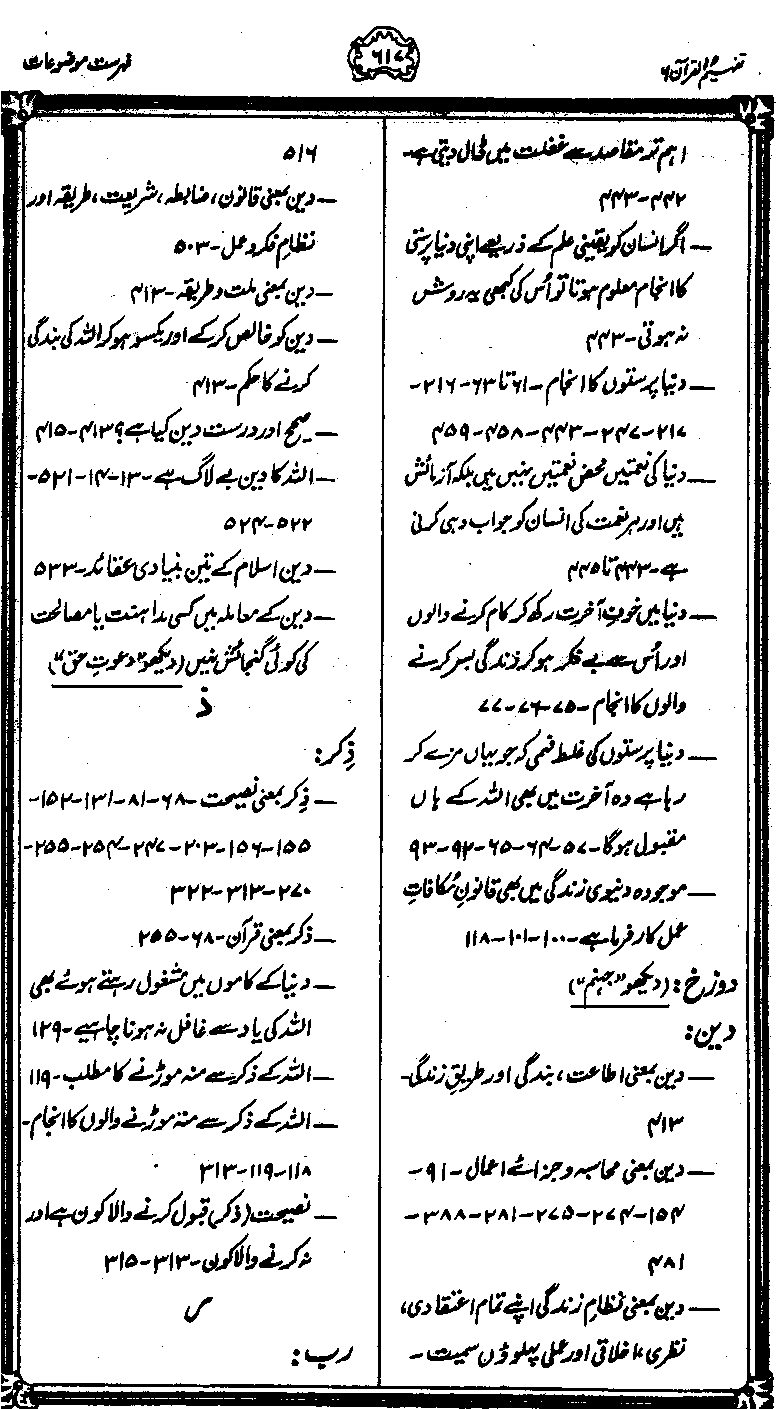 تفہیم القرآن ۶
۶۱۷
فہرست موضوعات
اہم تر مقاصد سے غفلت میں ڈال دیتی ہے۔
۴۴۲-۴۴۳
— اگر انسان کو یقینی علم کے ذریعے اپنی دنیا پرستی
کا انجام معلوم ہوتا تو اُس کی کبھی یہ روش
نہ ہوتی-۴۴۳
— دنیا پرستوں کا انجام-۶۱ تا ۶۳-۲۱۶-
۲۱۷-۲۴۷-۴۴۳-۴۵۸-۴۵۹
— دنیا کی نعمتیں محض نعمتیں نہیں ہیں بلکہ آزمائش
ہیں اور ہر نعمت کی انسان کو جواب دہی کرنی
ہے-۴۴۳ تا ۴۴۵
— دنیا میں خوفِ آخرت رکھ کر کام کرنے والوں
اور اُس سے بے فکر ہو کر زندگی بسر کرنے
والوں کا انجام-۷۵-۷۶-۷۷
— دنیا پرستوں کی غلط فہمی کہ جو یہاں مزے کر
رہا ہے وہ آخرت میں بھی اللہ کے ہاں
مقبول ہوگا-۵۷-۶۴-۶۵-۹۲-۹۳
— موجودہ دنیوی زندگی میں بھی قانونِ مُکافاتِ
عمل کار فرما ہے-۱۰۰-۱۰۱-۱۱۸
دوزخ: (دیکھو "جہنم")
دین:
— دین بمعنی اطاعت، بندگی اور طریقِ زندگی-
۴۱۳
— دین بمعنی محاسبہ و جزائے اعمال-۹۱-
۱۵۴-۲۷۴-۲۷۵-۲۸۱-۳۸۸-
۴۸۱
— دین بمعنی نظامِ زندگی اپنے تمام اعتقادی،
نظری، اخلاقی اور عملی پہلوؤں سمیت-
۵۱۶
— دین بمعنی قانون، ضابطہ، شریعت، طریقہ اور
نظامِ فکر و عمل-۵۰۳
— دین بمعنی ملت و طریقہ-۴۱۳
— دین کو خالص کر کے اور یکسو ہو کر اللہ کی بندگی
کرنے کا حکم-۴۱۳
— صحیح اور درست دین کیا ہے؟ ۴۱۳-۴۱۵
— اللہ کا دین بے لاگ ہے-۱۳-۱۴-۵۲۱-
۵۲۲-۵۲۴
— دین اسلام کے تین بنیادی عقائد-۵۳۳
— دین کے معاملہ میں کسی مداہنت یا مصالحت
کی کوئی گنجائش نہیں (دیکھو "دعوتِ حق")
ذ
ذِکر:
— ذِکر بمعنی نصیحت-۶۸-۸۱-۱۳۱-۱۵۲-
۱۵۵-۱۵۶-۲۰۳-۲۴۷-۲۵۴-۲۵۵-
۲۷۰-۳۱۳-۳۲۲
— ذکر بمعنی قرآن-۶۸-۲۵۵
— دنیا کے کاموں میں مشغول رہتے ہوئے بھی
اللہ کی یاد سے غافل نہ ہونا چاہیے-۱۲۹
— اللہ کے ذکر سے منہ موڑنے کا مطلب-۱۱۹
— اللہ کے ذکر سے منہ موڑنے والوں کا انجام-
۱۱۸-۱۱۹-۳۱۳
— نصیحت (ذکر) قبول کرنے والا کون ہے اور
نہ کرنے والا کون-۳۱۳-۳۱۵
ر
رب: